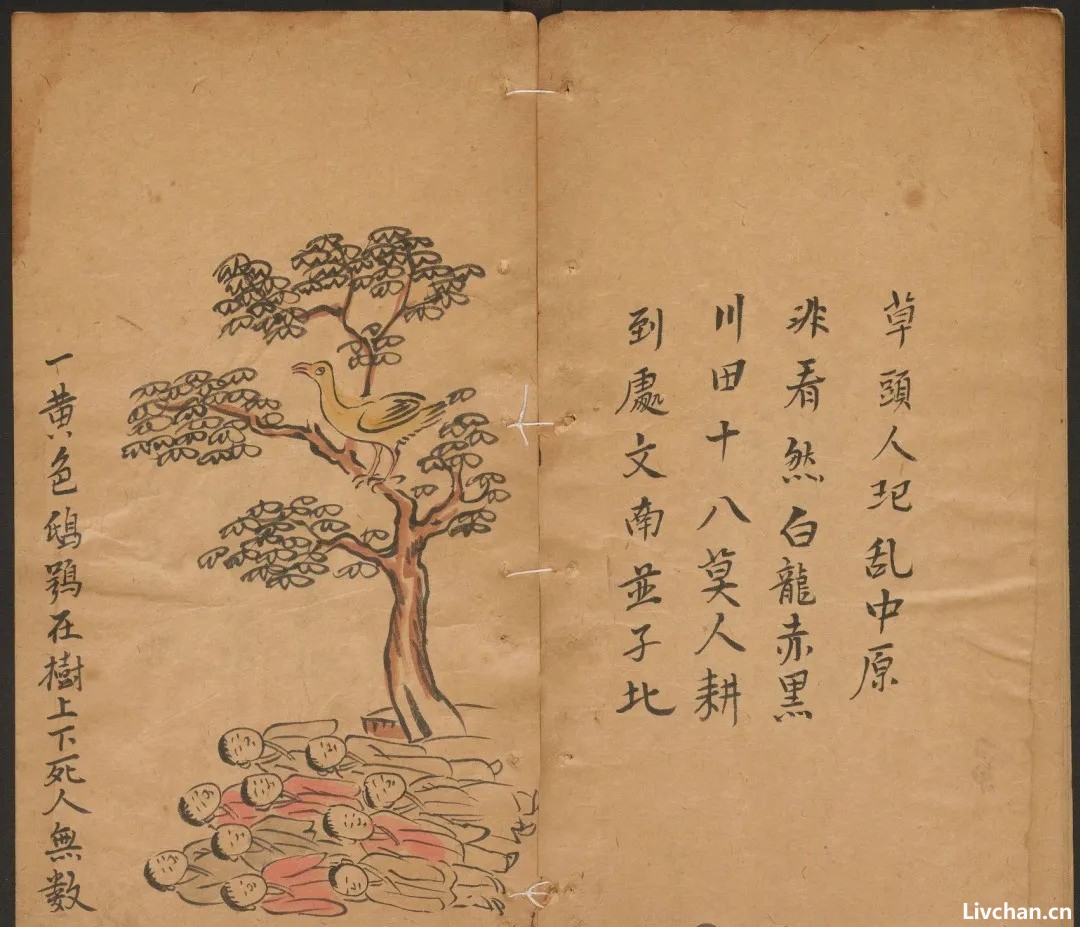 草頭人犯乱中原
非看然白龍赤黑
川田十八莫人耕
到處文南並子北
一黄色鴟鶚在樹上下死人無数
Livchan.cn